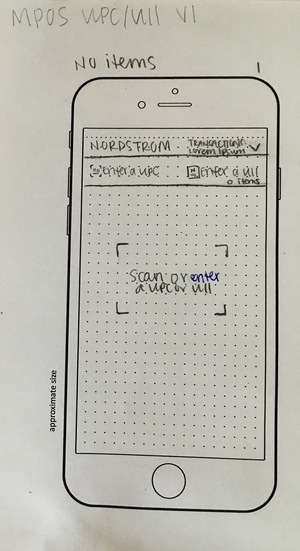 MPOS UPC/UII V1
No items
1
NORDSTROM
TRANSACTION:
Lorem Ipsum
Enter a UPC
Enter a UII
0 items
Scan or enter
a UPC or UII
approximate size